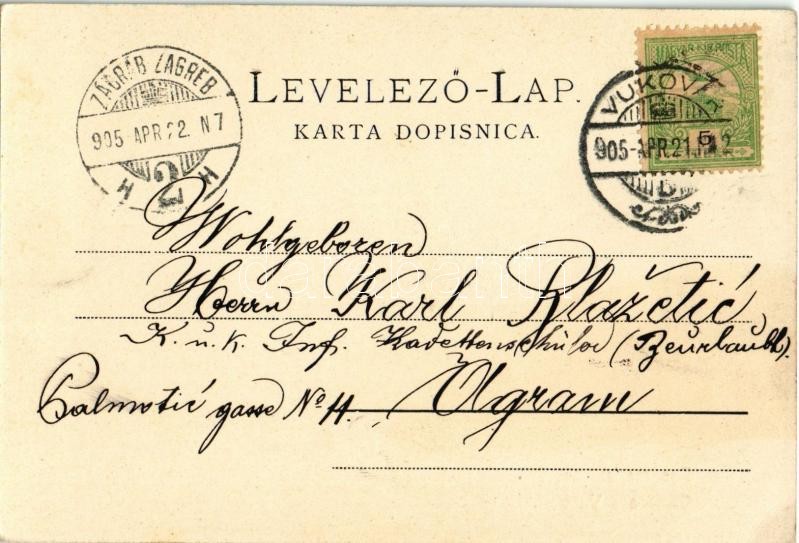 ZÁGRÁB ZAGREB
905 APR 22 N7
LEVELEZŐ-LAP.
KARTA DOPISNICA.
MAGYAR KIR. POSTA
5
VUKOV
905-APR.21
Wohlgeboren
Herrn Karl Blažetić
K. u. k. Inf. Kadettenschüler (Beurlaubt).
Palmotić gasse No 11. Agram